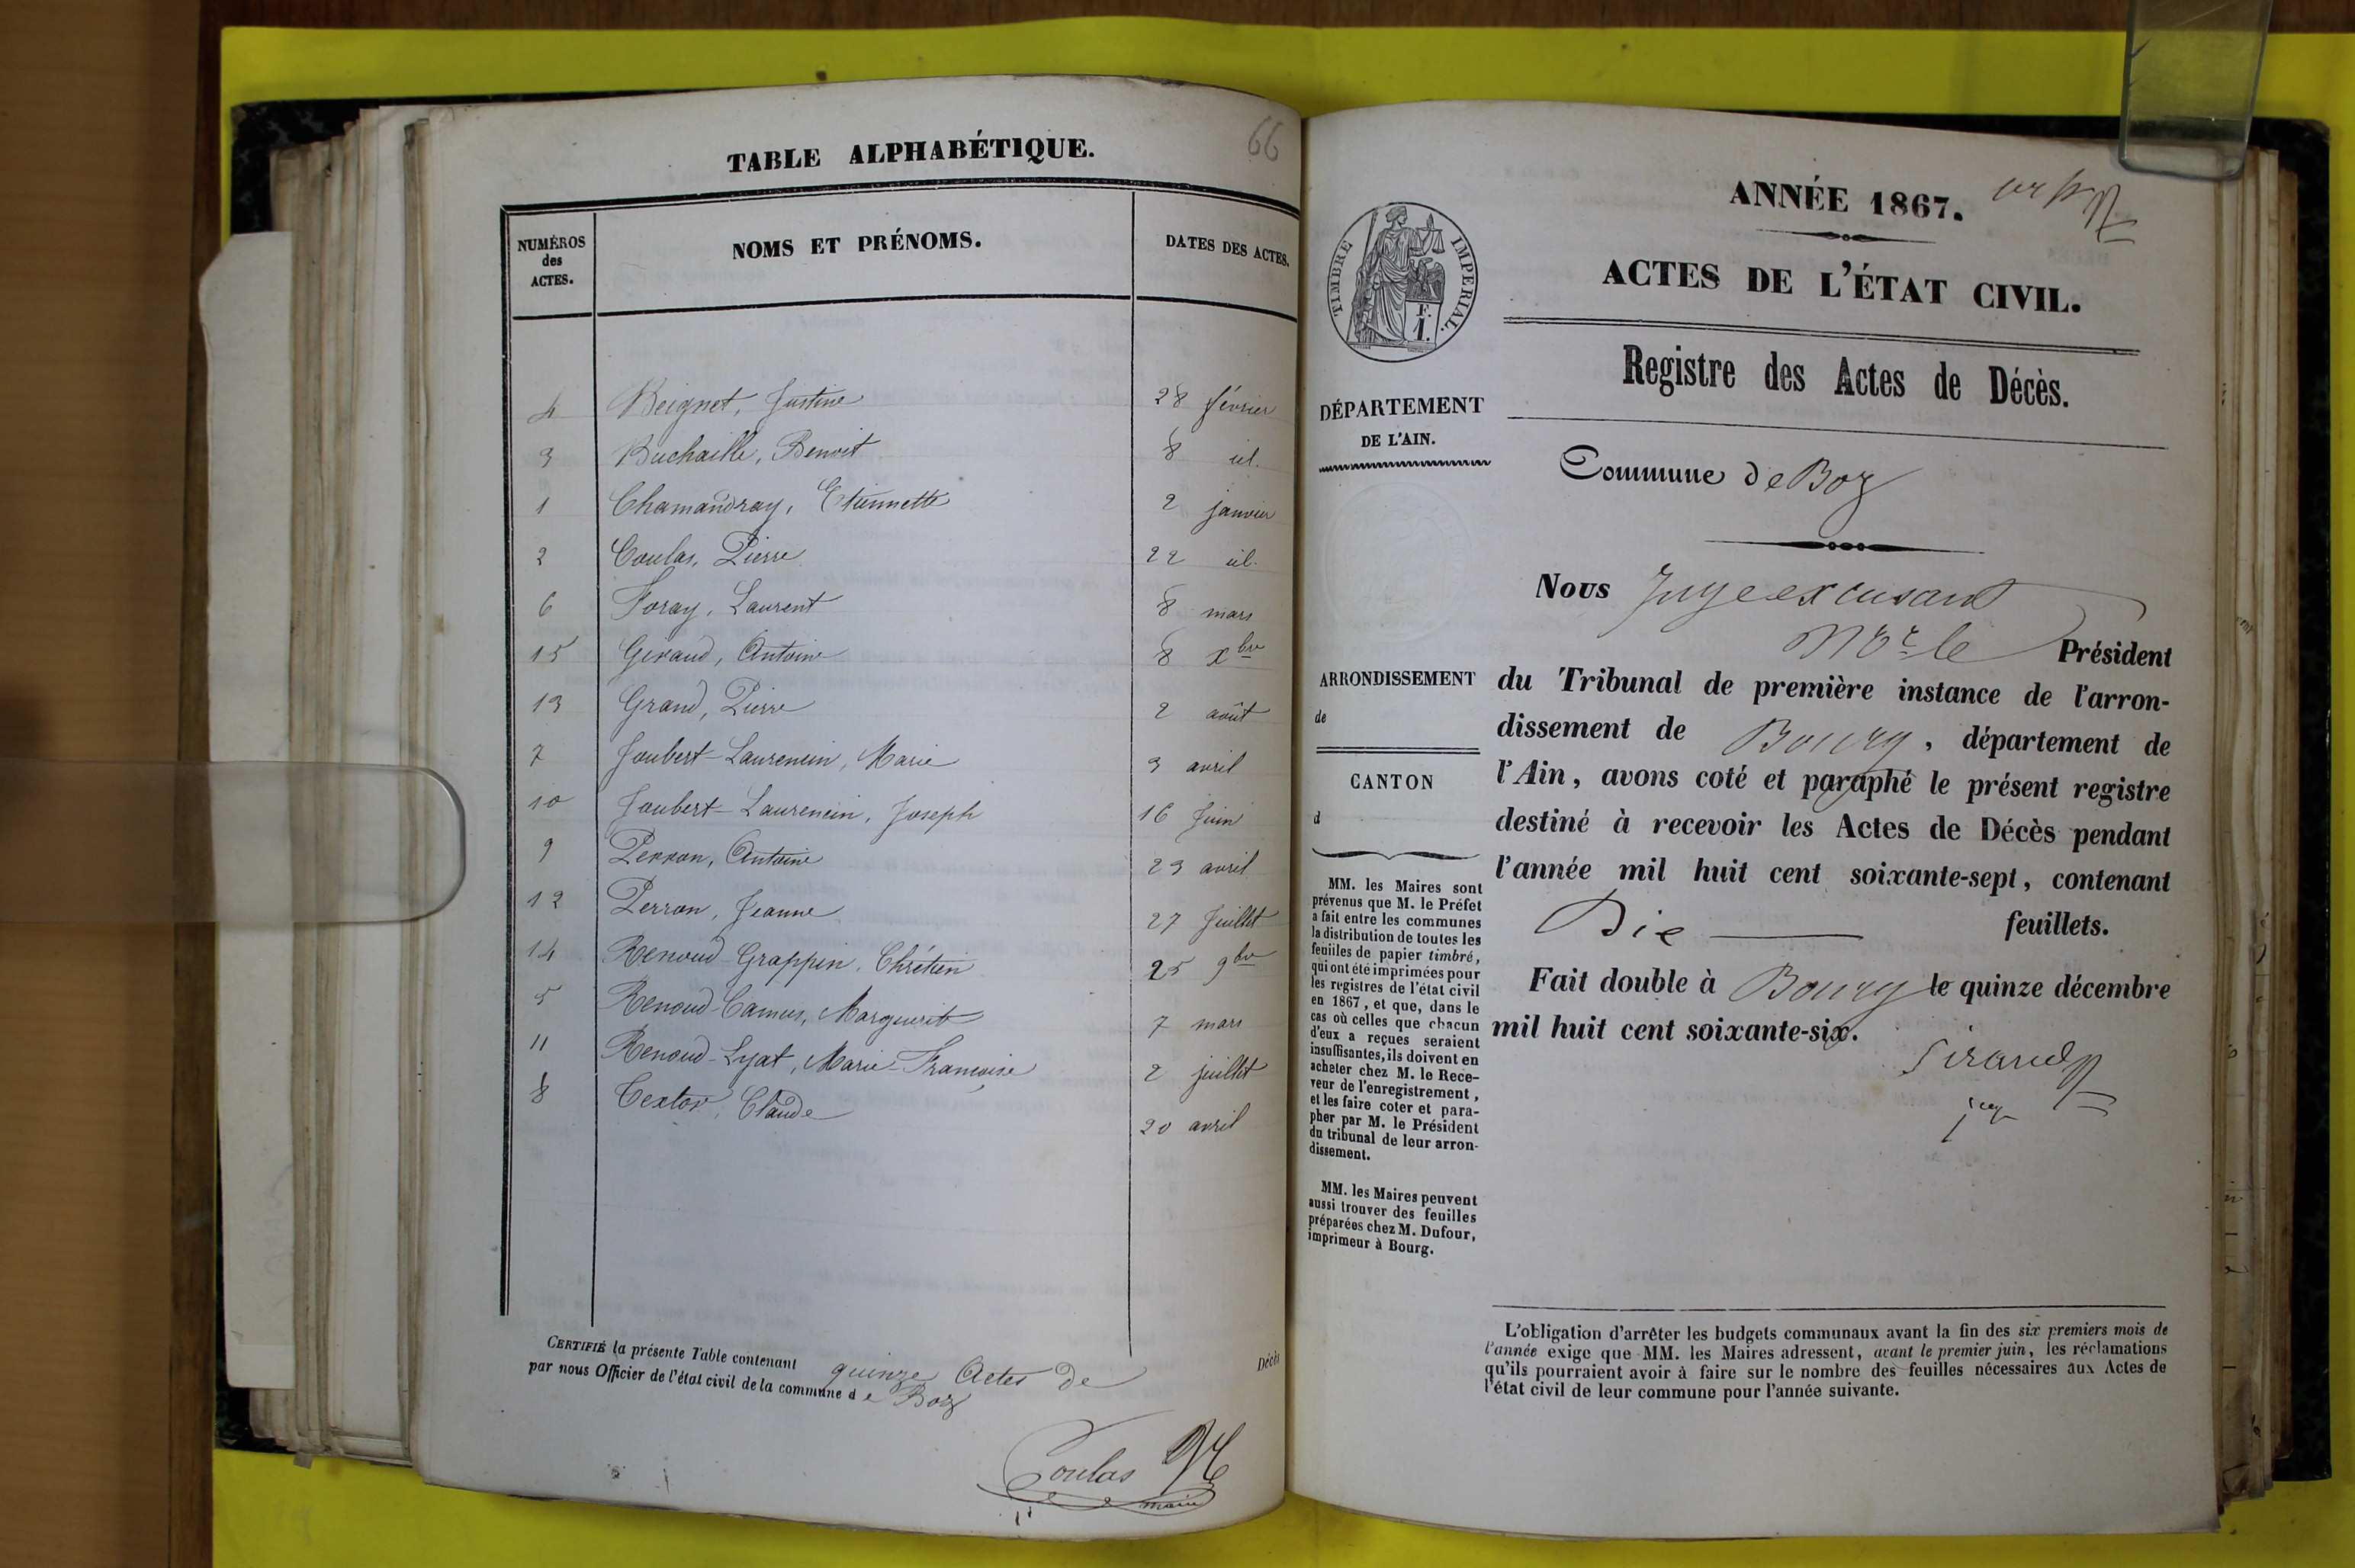 66
TABLE ALPHABÉTIQUE.
NUMÉROS des ACTES.
NOMS ET PRÉNOMS.
DATES DES ACTES.
4 Beignet, Justine 28 février
3 Buchaille, Benoit 8 id.
1 Chamandray, Etiennette 2 janvier
2 Coulas, Pierre 22 id.
6 Foray, Laurent 8 mars
15 Giraud, Antoine 8 xbre
13 Grand, Pierre 2 août
7 Joubert-Laurencin, Marie 3 avril
10 Joubert-Laurencin, Joseph 16 Juin
9 Perron, Antoine 23 avril
12 Perron, Jeanne 27 Juillet
14 Renoud-Grappin, Chrétien 25 9bre
5 Renoud-Camus, Marguerite 7 mars
11 Renoud-Lyat, Marie-Françoise 2 juillet
8 Textor, Claude 20 avril
CERTIFIÉ la présente Table contenant quinze Actes de Décès
par nous Officier de l'état civil de la commune de Boz
Coulas
maire
ANNÉE 1867.
ACTES DE L'ÉTAT CIVIL.
Registre des Actes de Décès.
TIMBRE IMPERIAL.
F.
1.
DÉPARTEMENT
DE L'AIN.
Commune de Boz
Nous Juge excusant
Mr le Président
ARRONDISSEMENT
de
du Tribunal de première instance de l'arron-
dissement de Bourg, département de
l'Ain, avons coté et paraphé le présent registre
destiné à recevoir les Actes de Décès pendant
l'année mil huit cent soixante-sept, contenant
Dix feuillets.
Fait double à Bourg le quinze décembre
mil huit cent soixante-six.
CANTON
d
MM. les Maires sont
prévenus que M. le Préfet
a fait entre les communes
la distribution de toutes les
feuilles de papier timbré,
qui ont été imprimées pour
les registres de l'état civil
en 1867, et que, dans le
cas où celles que chacun
d'eux a reçues seraient
insuffisantes, ils doivent en
acheter chez M. le Rece-
veur de l'enregistrement,
et les faire coter et para-
pher par M. le Président
du tribunal de leur arron-
dissement.
MM. les Maires peuvent
aussi trouver des feuilles
préparées chez M. Dufour,
imprimeur à Bourg.
L'obligation d'arrêter les budgets communaux avant la fin des six premiers mois de
l'année exige que MM. les Maires adressent, avant le premier juin, les réclamations
qu'ils pourraient avoir à faire sur le nombre des feuilles nécessaires aux Actes de
l'état civil de leur commune pour l'année suivante.